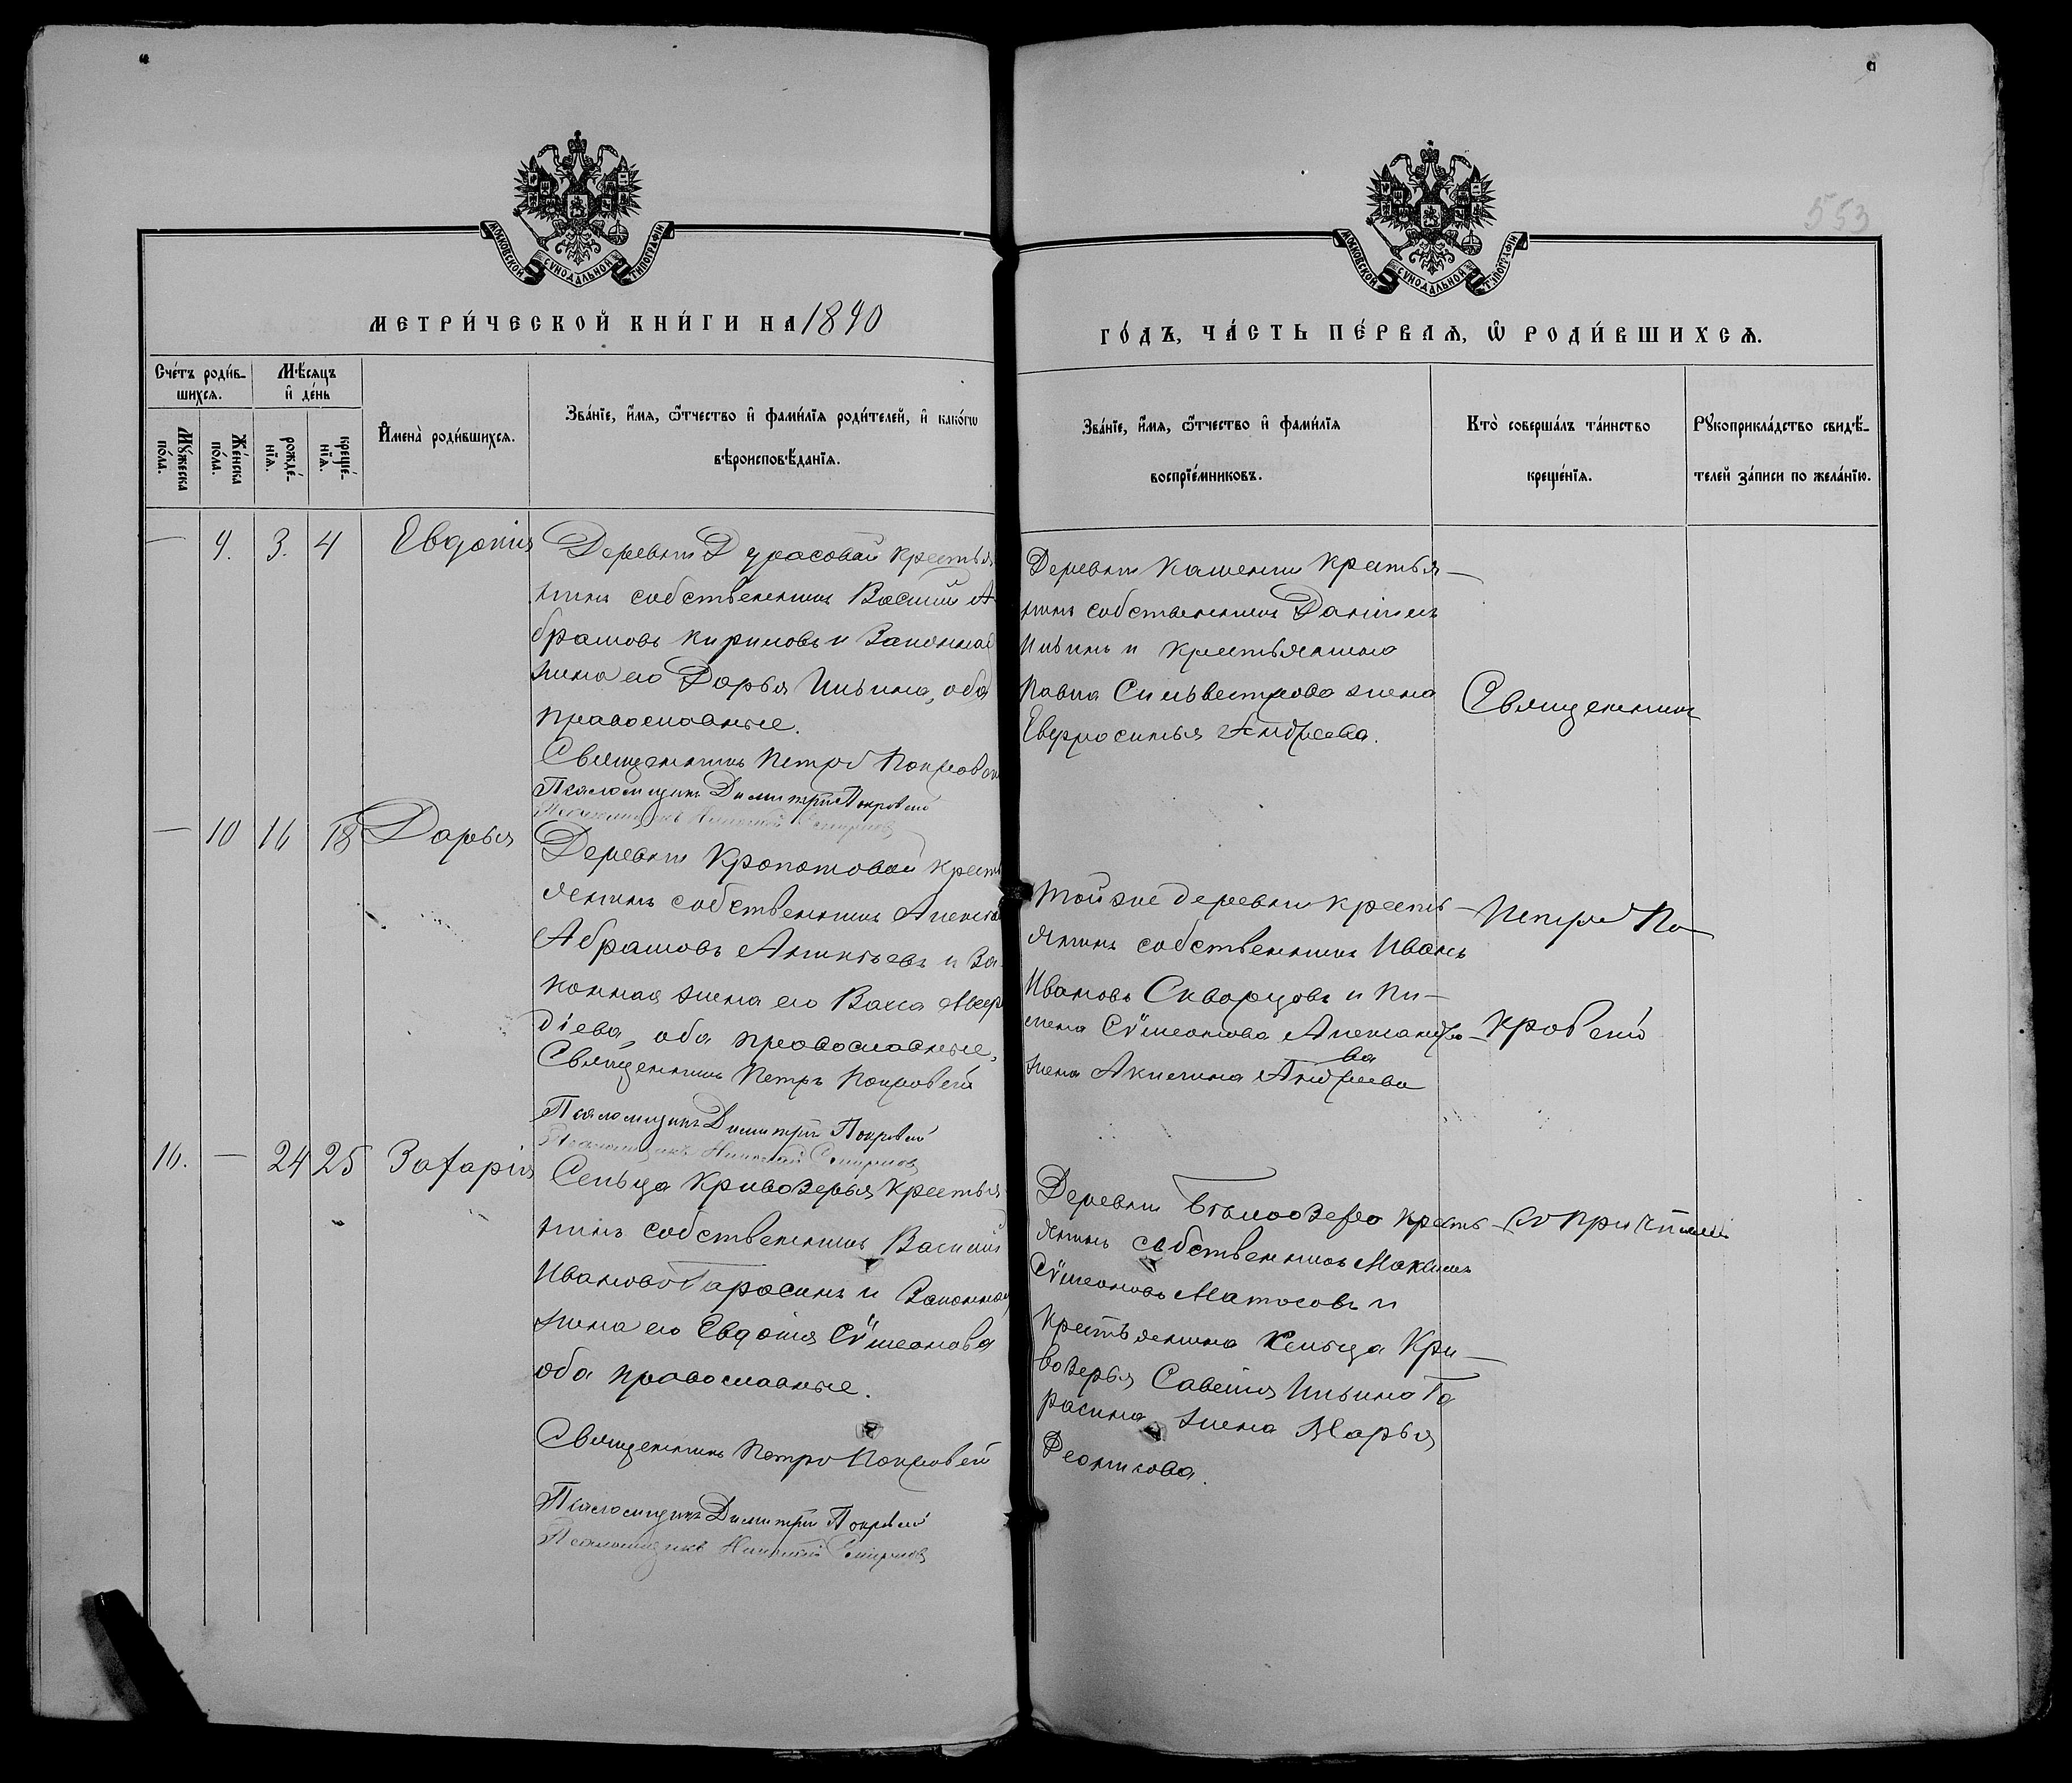 553
МОСКОВСКОЙ СѴНОДАЛЬНОЙ ТИПОГРАФІИ
МОСКОВСКОЙ СѴНОДАЛЬНОЙ ТИПОГРАФІИ
МЕТРИ́ЧЕСКОЙ КНИ́ГИ НА 1890
ГО́ДЪ, ЧА́СТЬ ПЕ́РВАѦ, Ѡ҆ РОДИ́ВШИХСѦ.
Сче́тъ роди́в-
шихсѧ.
Мѣ́сяцъ
и҆ де́нь
Мꙋ́жеска
по́ла.
Же́нска
по́ла.
рожде́-
нїѧ.
креще́-
нїѧ.
И҆мена̀ роди́вшихсѧ.
Зва́нїе, и҆́мѧ, ѻ҆́тчество и҆ фами́лїѧ роди́телей, и҆ како́гѡ
вѣроисповѣ́данїѧ.
Зва́нїе, и҆́мѧ, ѻ҆́тчество и҆ фами́лїѧ
воспрїе́мниковъ.
Кто̀ соверша́лъ та́инство
креще́нїѧ.
Рꙋкоприкла́дство свидѣ́-
телей за́писи по жела́нїю.
— 9. 3. 4 Евдокія
Деревни Дурасовой крестья
нинъ собственникъ Василій А
брамовъ Кириловъ и Законная
жена его Дарья Ильина, оба
православные.
Священникъ Петръ Покровскій
Псаломщикъ Димитрій Покровскій
Псаломщикъ Николай Смирновъ
Деревни Кашенки Крестья—
нинъ собственникъ Даніилъ
Ильинъ и Крестьянина
Павла Сильвестрова жена
Евфросинья Андреева.
Священникъ
— 10 16 18 Дарья
Деревни Кропотовой Кресть
янинъ собственникъ Алексѣй
Абрамовъ Аникѣевъ и За-
конная жена его Васса Авер
діева, оба православные.
Священникъ Петръ Покровскій
Псаломщикъ Димитрій Покровскій
Псаломщикъ Николай Смирновъ
Той же деревни кресть—
янинъ собственникъ Иванъ
Ивановъ Скворцовъ и Пи—
мена Сѵмеонова Александро-
ва
жена Акилина Андреева
Петръ По—
кровскій
16. — 24 25 Захарія
Сельца Кривозерья Крестья
нинъ собственникъ Василій
Ивановъ Гарасинъ и Законная
жена его Евдокія Сѵмеонова
оба православные.
Священникъ Петръ Покровскій
Псаломщикъ Димитрій Покровскій
Псаломщикъ Николай Смирновъ
Деревни Бѣлоозера кресть—
янинъ собственникъ Максимъ
Сѵмеоновъ Матосовъ и
Крестьянина Сельца Кри—
возерья Савелія Ильина Га
расина жена Марья
Леонтьева.
съ причтомъ